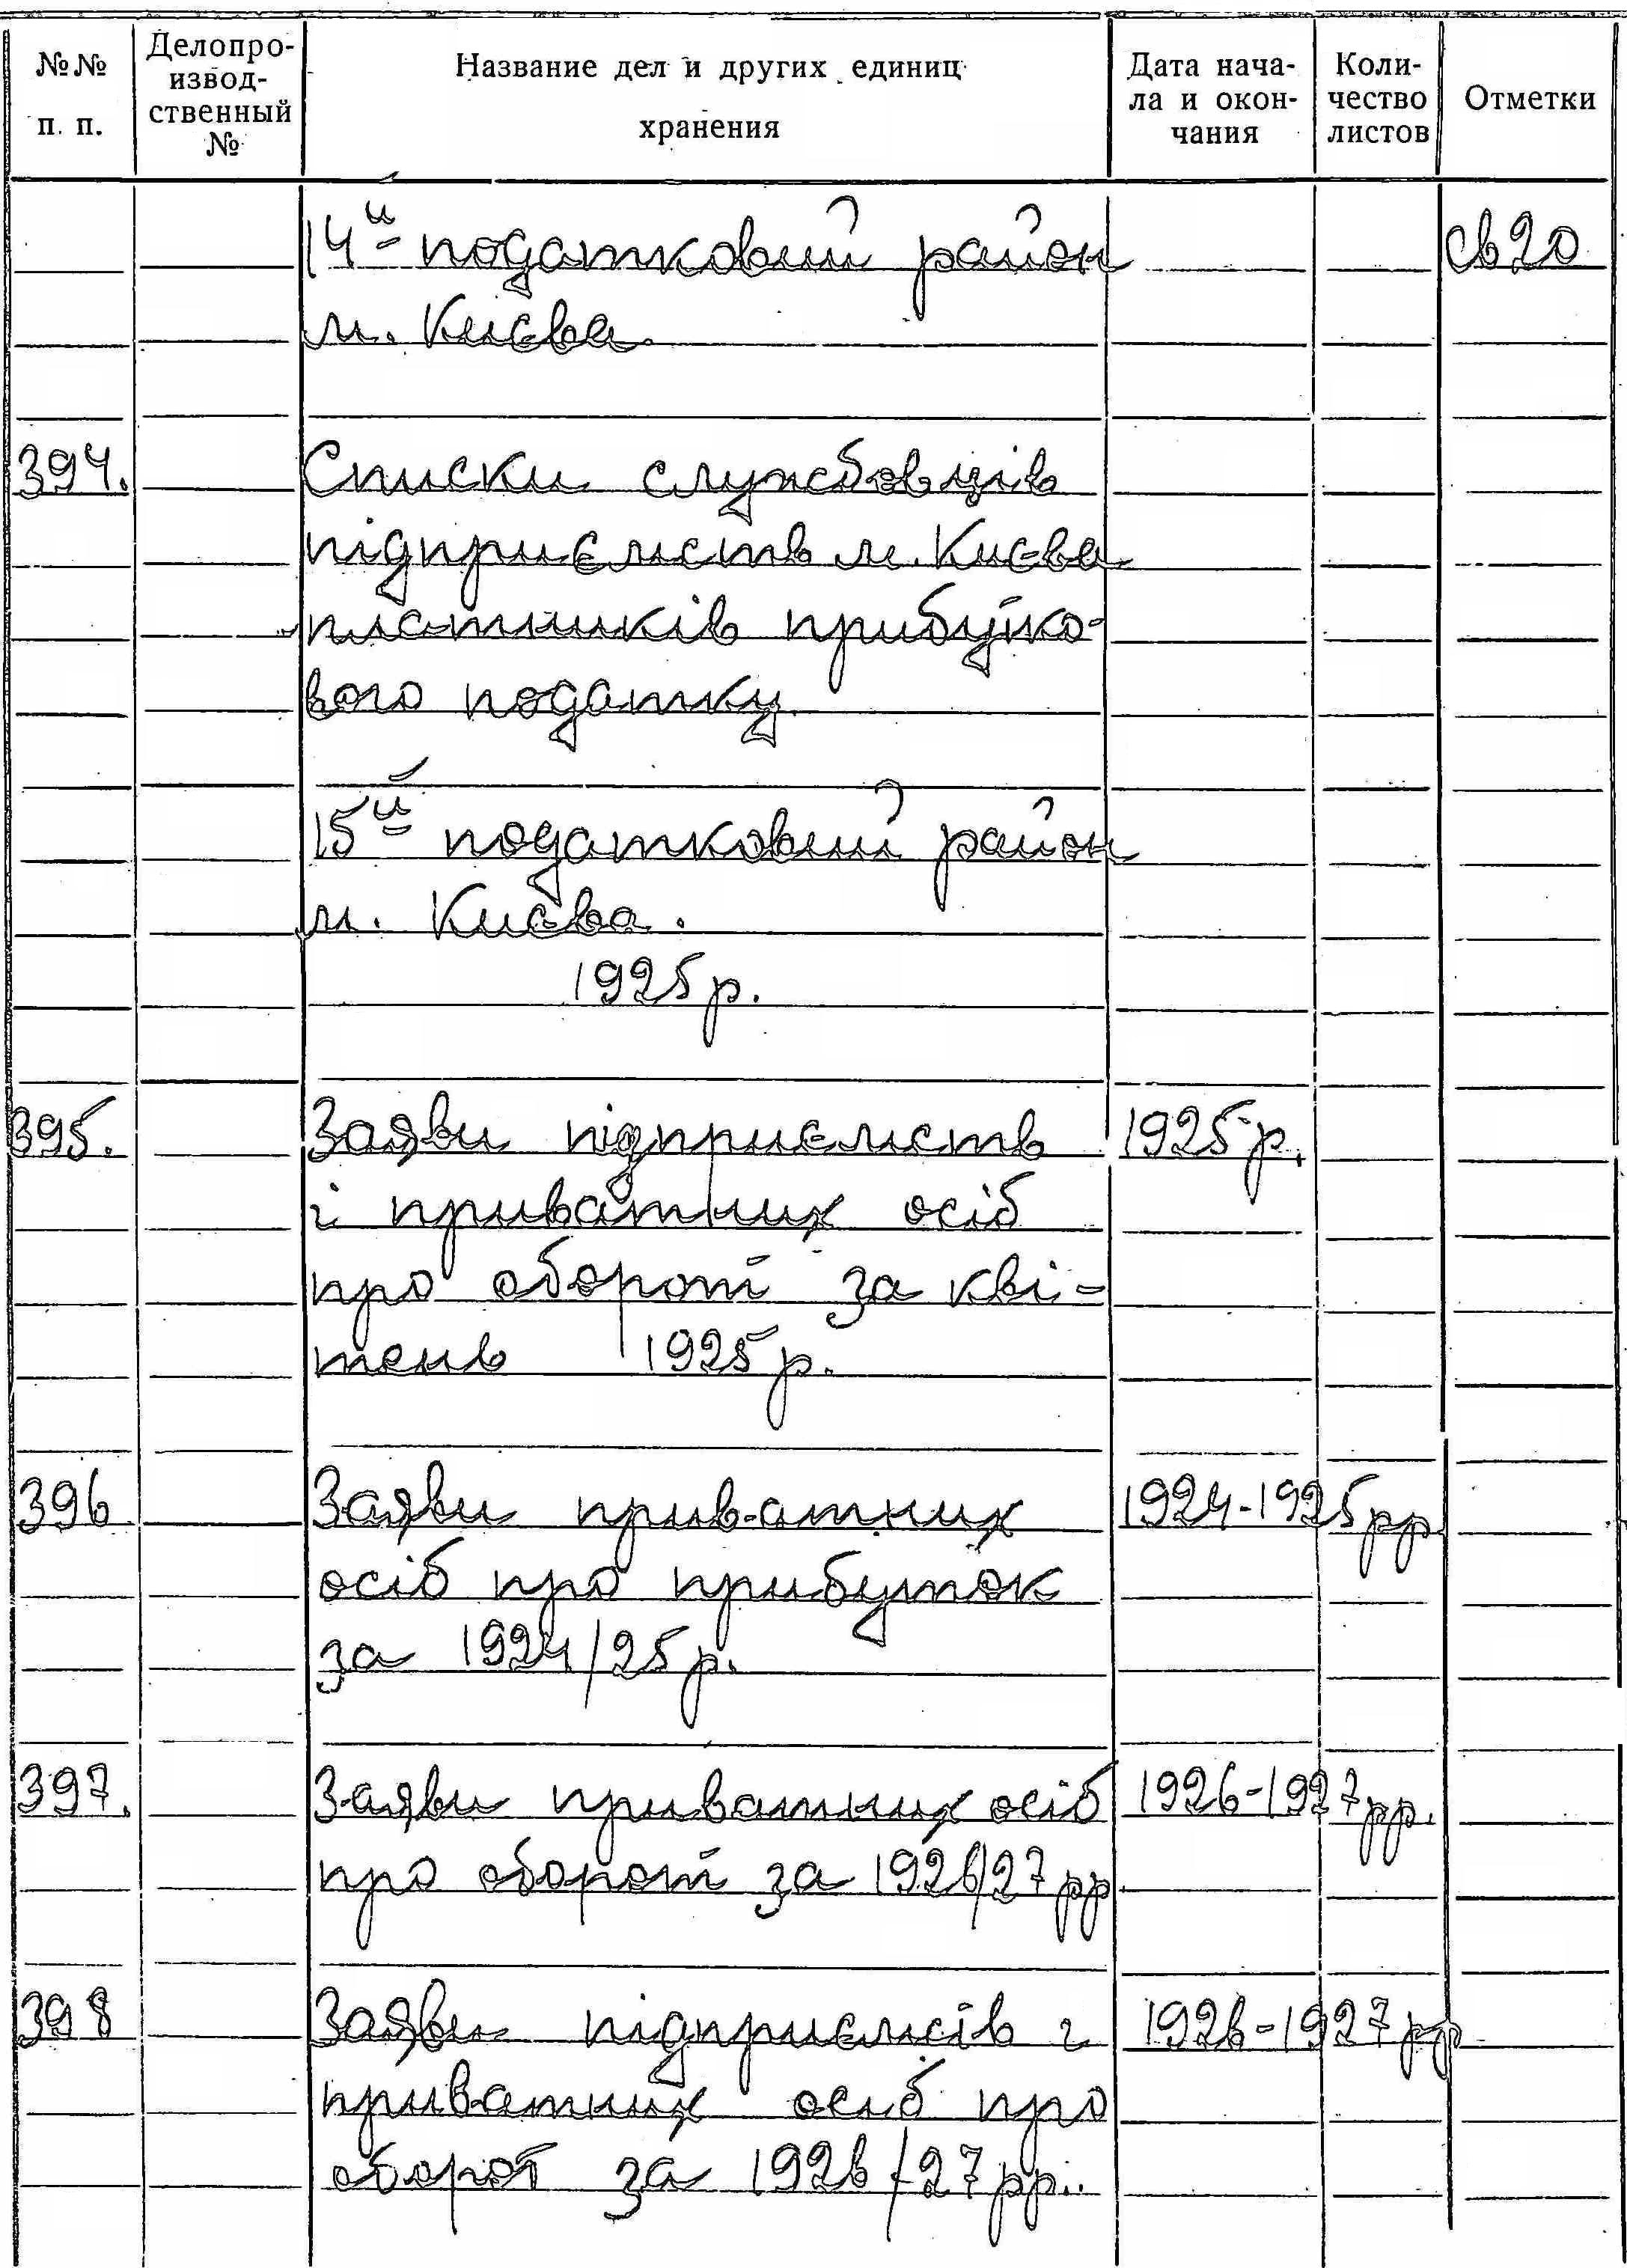 №№ п. п.
Делопро-
извод-
ственный
№
Название дел и других единиц
хранения
Дата нача-
ла и окон-
чания
Коли-
чество
листов
Отметки
14й податковий район св 20
м. Києва.
394. Списки службовців
підприємств м. Києва
платників прибутко-
вого податку
15й податковий район
м. Києва.
1925 р.
395. Заяви підприємств 1925 р.
і приватних осіб
про оборот за кві-
тень 1925 р.
396 Заяви приватних 1924-1925 рр
осіб про прибуток
за 1924/25 р.
397. Заяви приватних осіб 1926-1927 рр.
про оборот за 1926/27 рр
398 Заяви підприємсів і 1926-1927 рр
приватних осіб про
оборот за 1926/27 рр..